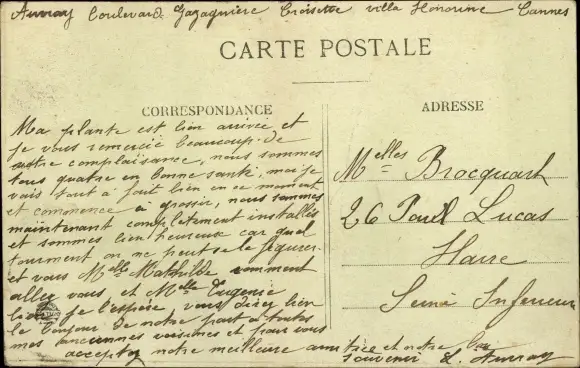 Auvray Boulevard Gazagnière Croisette villa Honorine Cannes
CARTE POSTALE
CORRESPONDANCE
Ma plante est bien arrivée et
je vous remercie beaucoup de
votre complaisance, nous sommes
tous quatre en bonne santé, moi je
vais tout à fait bien en ce moment
et commence à grossir, nous sommes
maintenant complètement installés
et sommes bien heureuse car quel
tourment on ne peut se le figurer
et vous Melle Mathilde comment
allez vous et Melle Eugenie
je l'espère vous direz bien
le bonjour de notre part à toutes
mes anciennes voisines et pour vous
acceptez notre meilleure amitiée et notre bon
souvenir L. Auvray
ADRESSE
Melles Brocquart
26 Paul Lucas
Havre
Seine Inferieure